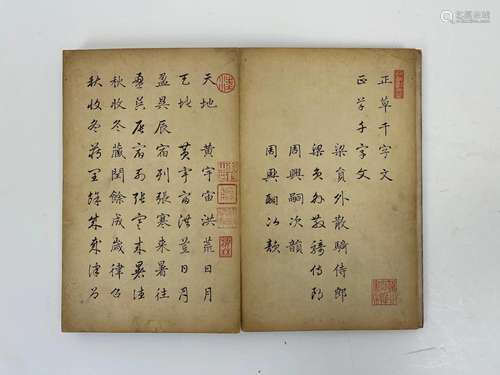 正草千字文
正草千字文
梁員外散騎侍郎
梁員外散騎侍郎
周興嗣次韻
周興嗣次韻
天地 黃宇宙洪荒日月
天地 黃宇宙洪荒日月
盈昃辰宿列張寒来暑往
盈昃辰宿列張寒来暑往
秋收冬藏閏餘成歲律呂
秋收冬藏閏餘成歲律呂